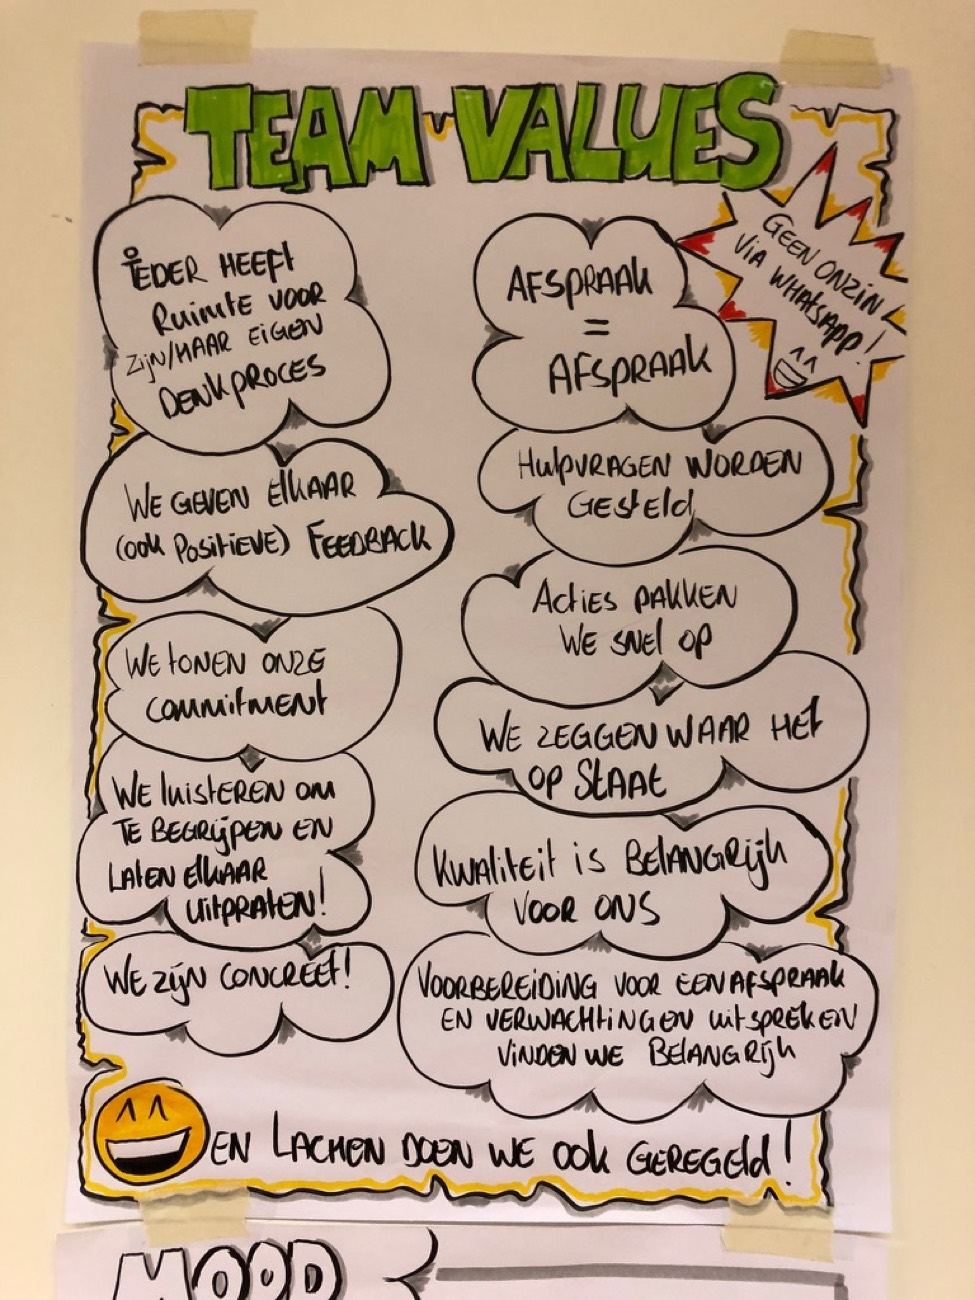 TEAM VALUES
IEDER HEEFT
RUIMTE VOOR
ZIJN/HAAR EIGEN
DENKPROCES
WE GEVEN ELKAAR
(OOK POSITIEVE) FEEDBACK
WE TONEN ONZE
COMMITMENT
WE LUISTEREN OM
TE BEGRIJPEN EN
LATEN ELKAAR
UITPRATEN!
WE ZIJN CONCREET!
GEEN ONZIN
VIA WHATSAPP!
AFSPRAAK
=
AFSPRAAK
HULPVRAGEN WORDEN
GESTELD
ACTIES PAKKEN
WE SNEL OP
WE ZEGGEN WAAR HET
OP STAAT
KWALITEIT IS BELANGRIJK
VOOR ONS
VOORBEREIDING VOOR EEN AFSPRAAK
EN VERWACHTINGEN UITSPREKEN
VINDEN WE BELANGRIJK
EN LACHEN DOEN WE OOK GEREGELD!
MOOD